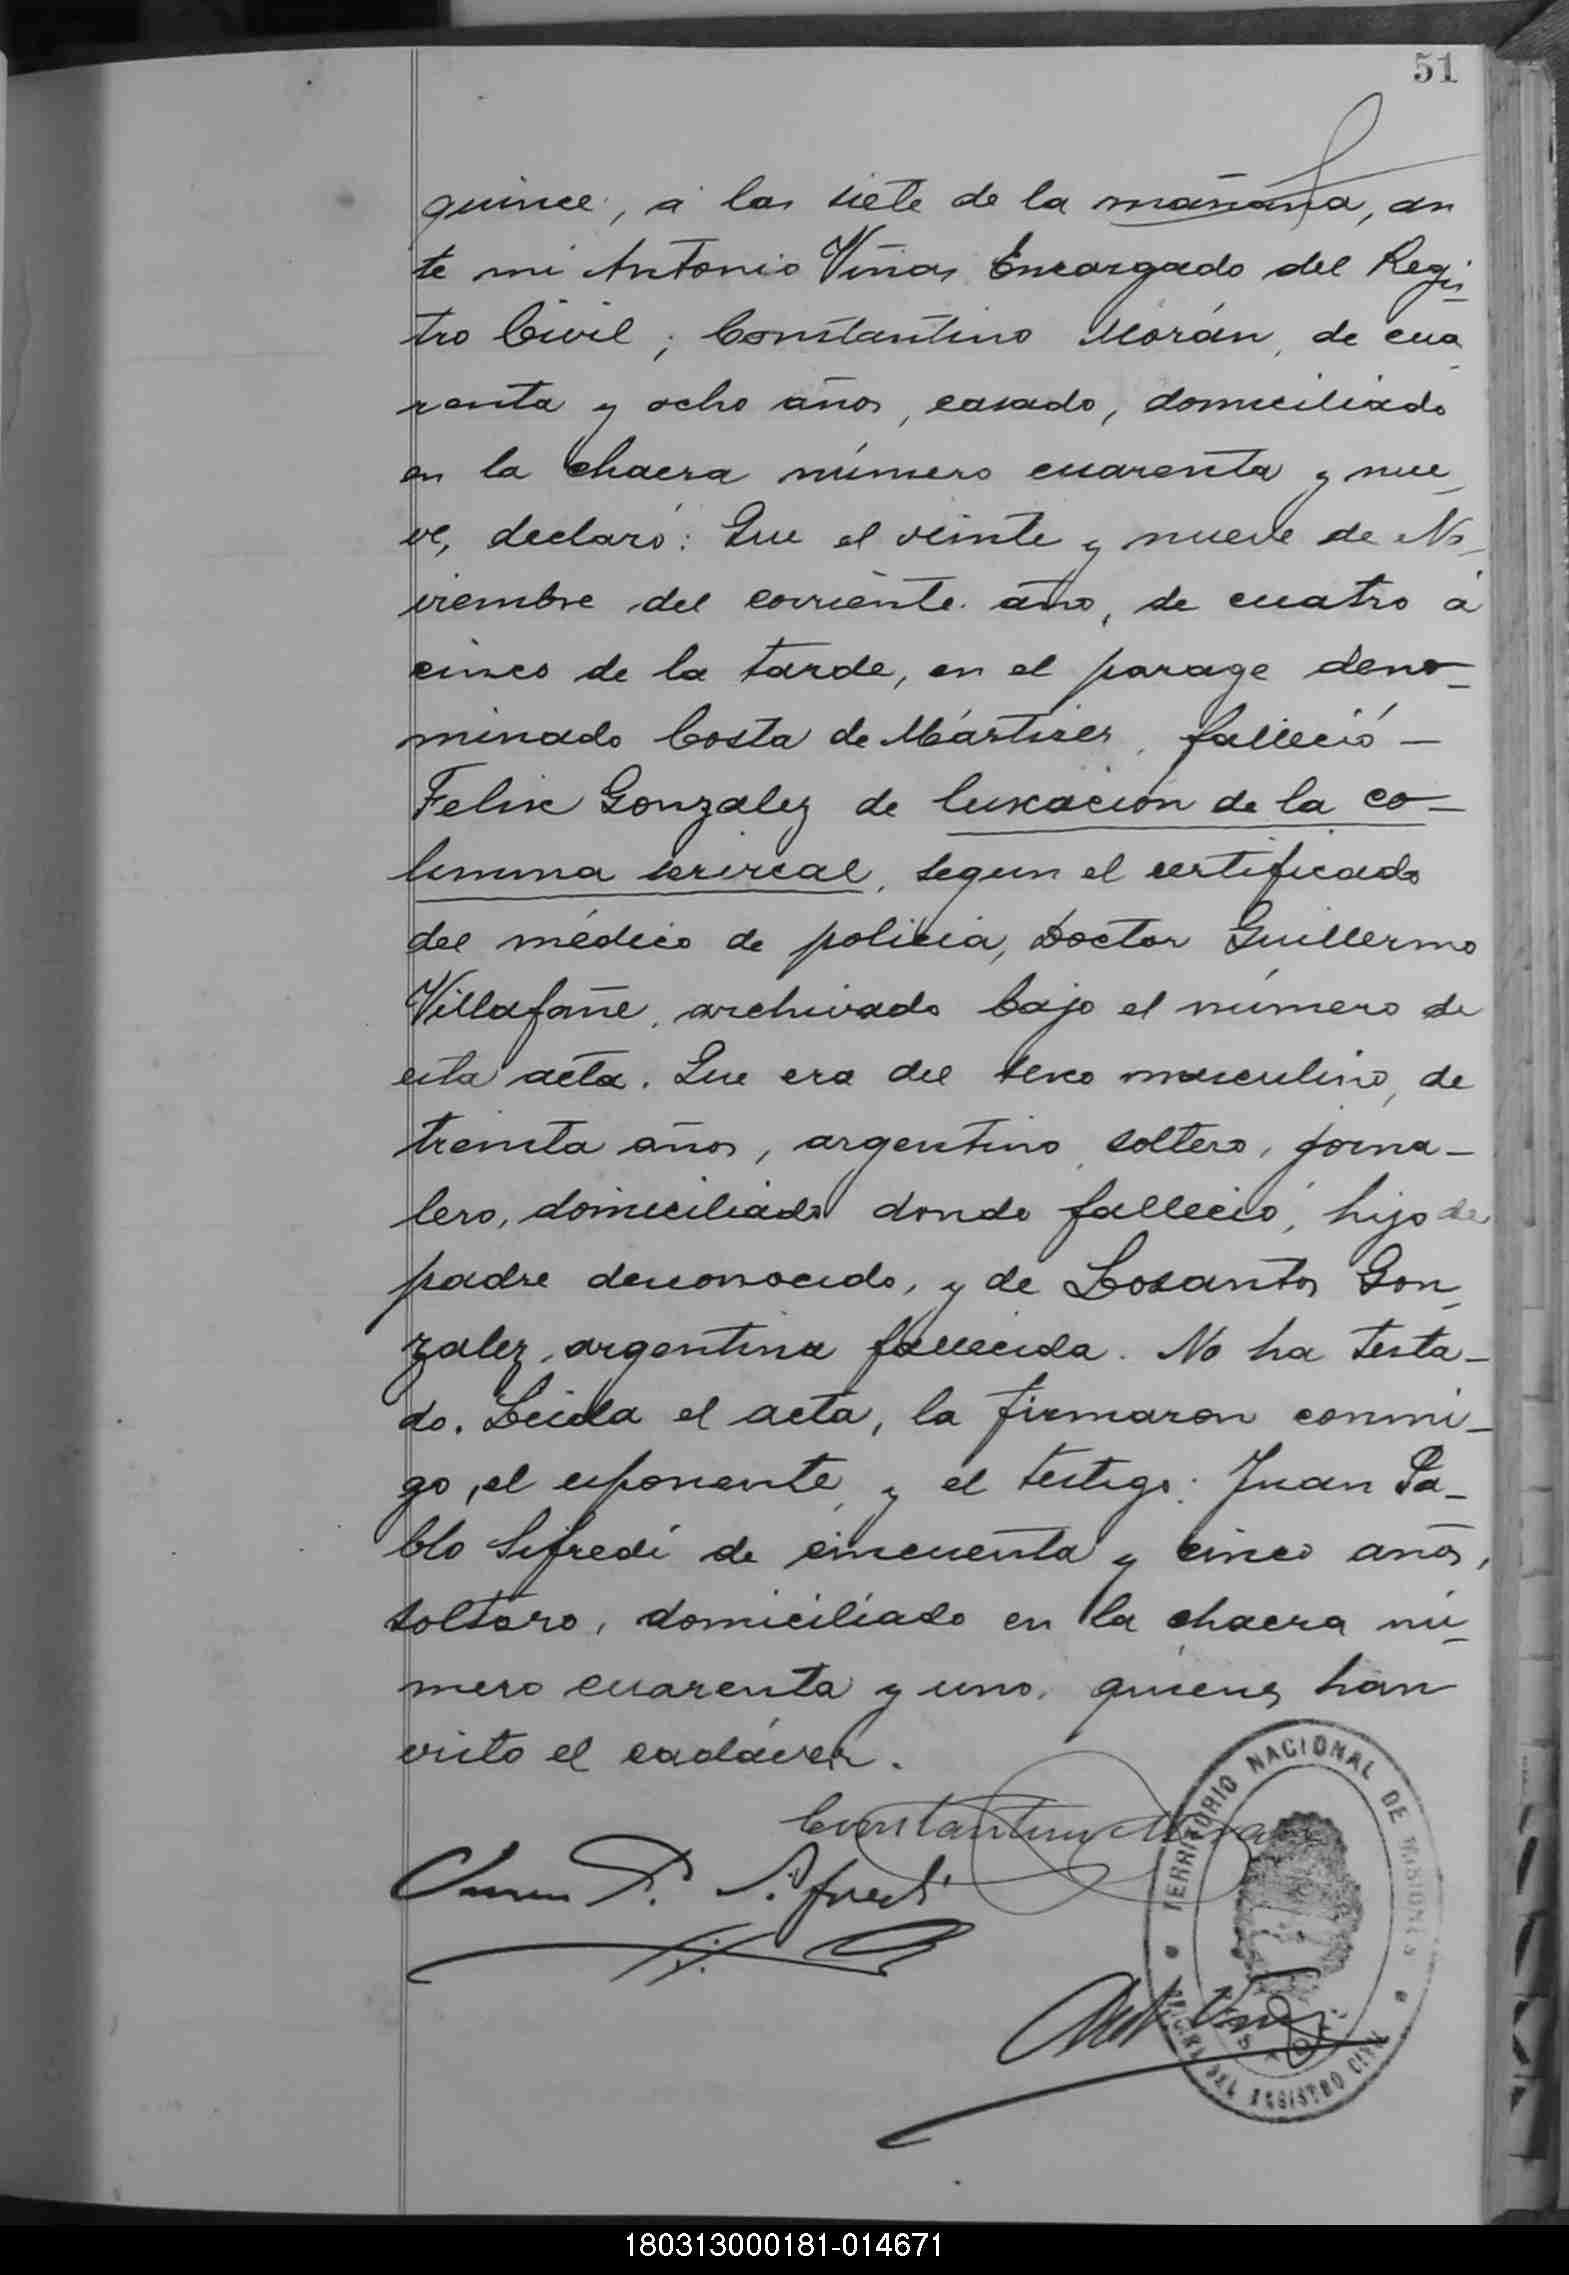 51
quince, á las siete de la mañana, an
te mi Antonio Viñas Encargado del Regis_
tro Civil; Constantino Morán, de cua_
renta y ocho años, casado, domiciliado
en la chacra número cuarenta y nue_
ve, declaró: Que el veinte y nueve de No_
viembre del corriente año, de cuatro á
cinco de la tarde, en el parage deno_
minado Costa de Mártires, falleció —
Felix Gonzalez de luxación de la co_
lumna servical, segun el certificado
del médico de policia, Doctor Guillermo
Villafañe, archivado bajo el número de
esta acta. Que era del sexo masculino, de
treinta años, argentino, soltero, jorna_
lero, domiciliado donde falleció, hijo de
padre desconocido, y de Losantos Gon_
zalez, argentina fallecida. No ha testa_
do. Leida el acta, la firmaron conmi_
go, el exponente, y el testigo: Juan Pa_
blo Sifredi de cincuenta y cinco años,
soltero, domiciliado en la chacra nú_
mero cuarenta y uno, quienes han
visto el cadáver.
Constantino Moran
Juan P. Sifredi
TERRITORIO NACIONAL DE MISIONES
Ant Viñas
OFICINA DEL REGISTRO CIVIL
180313000181-014671